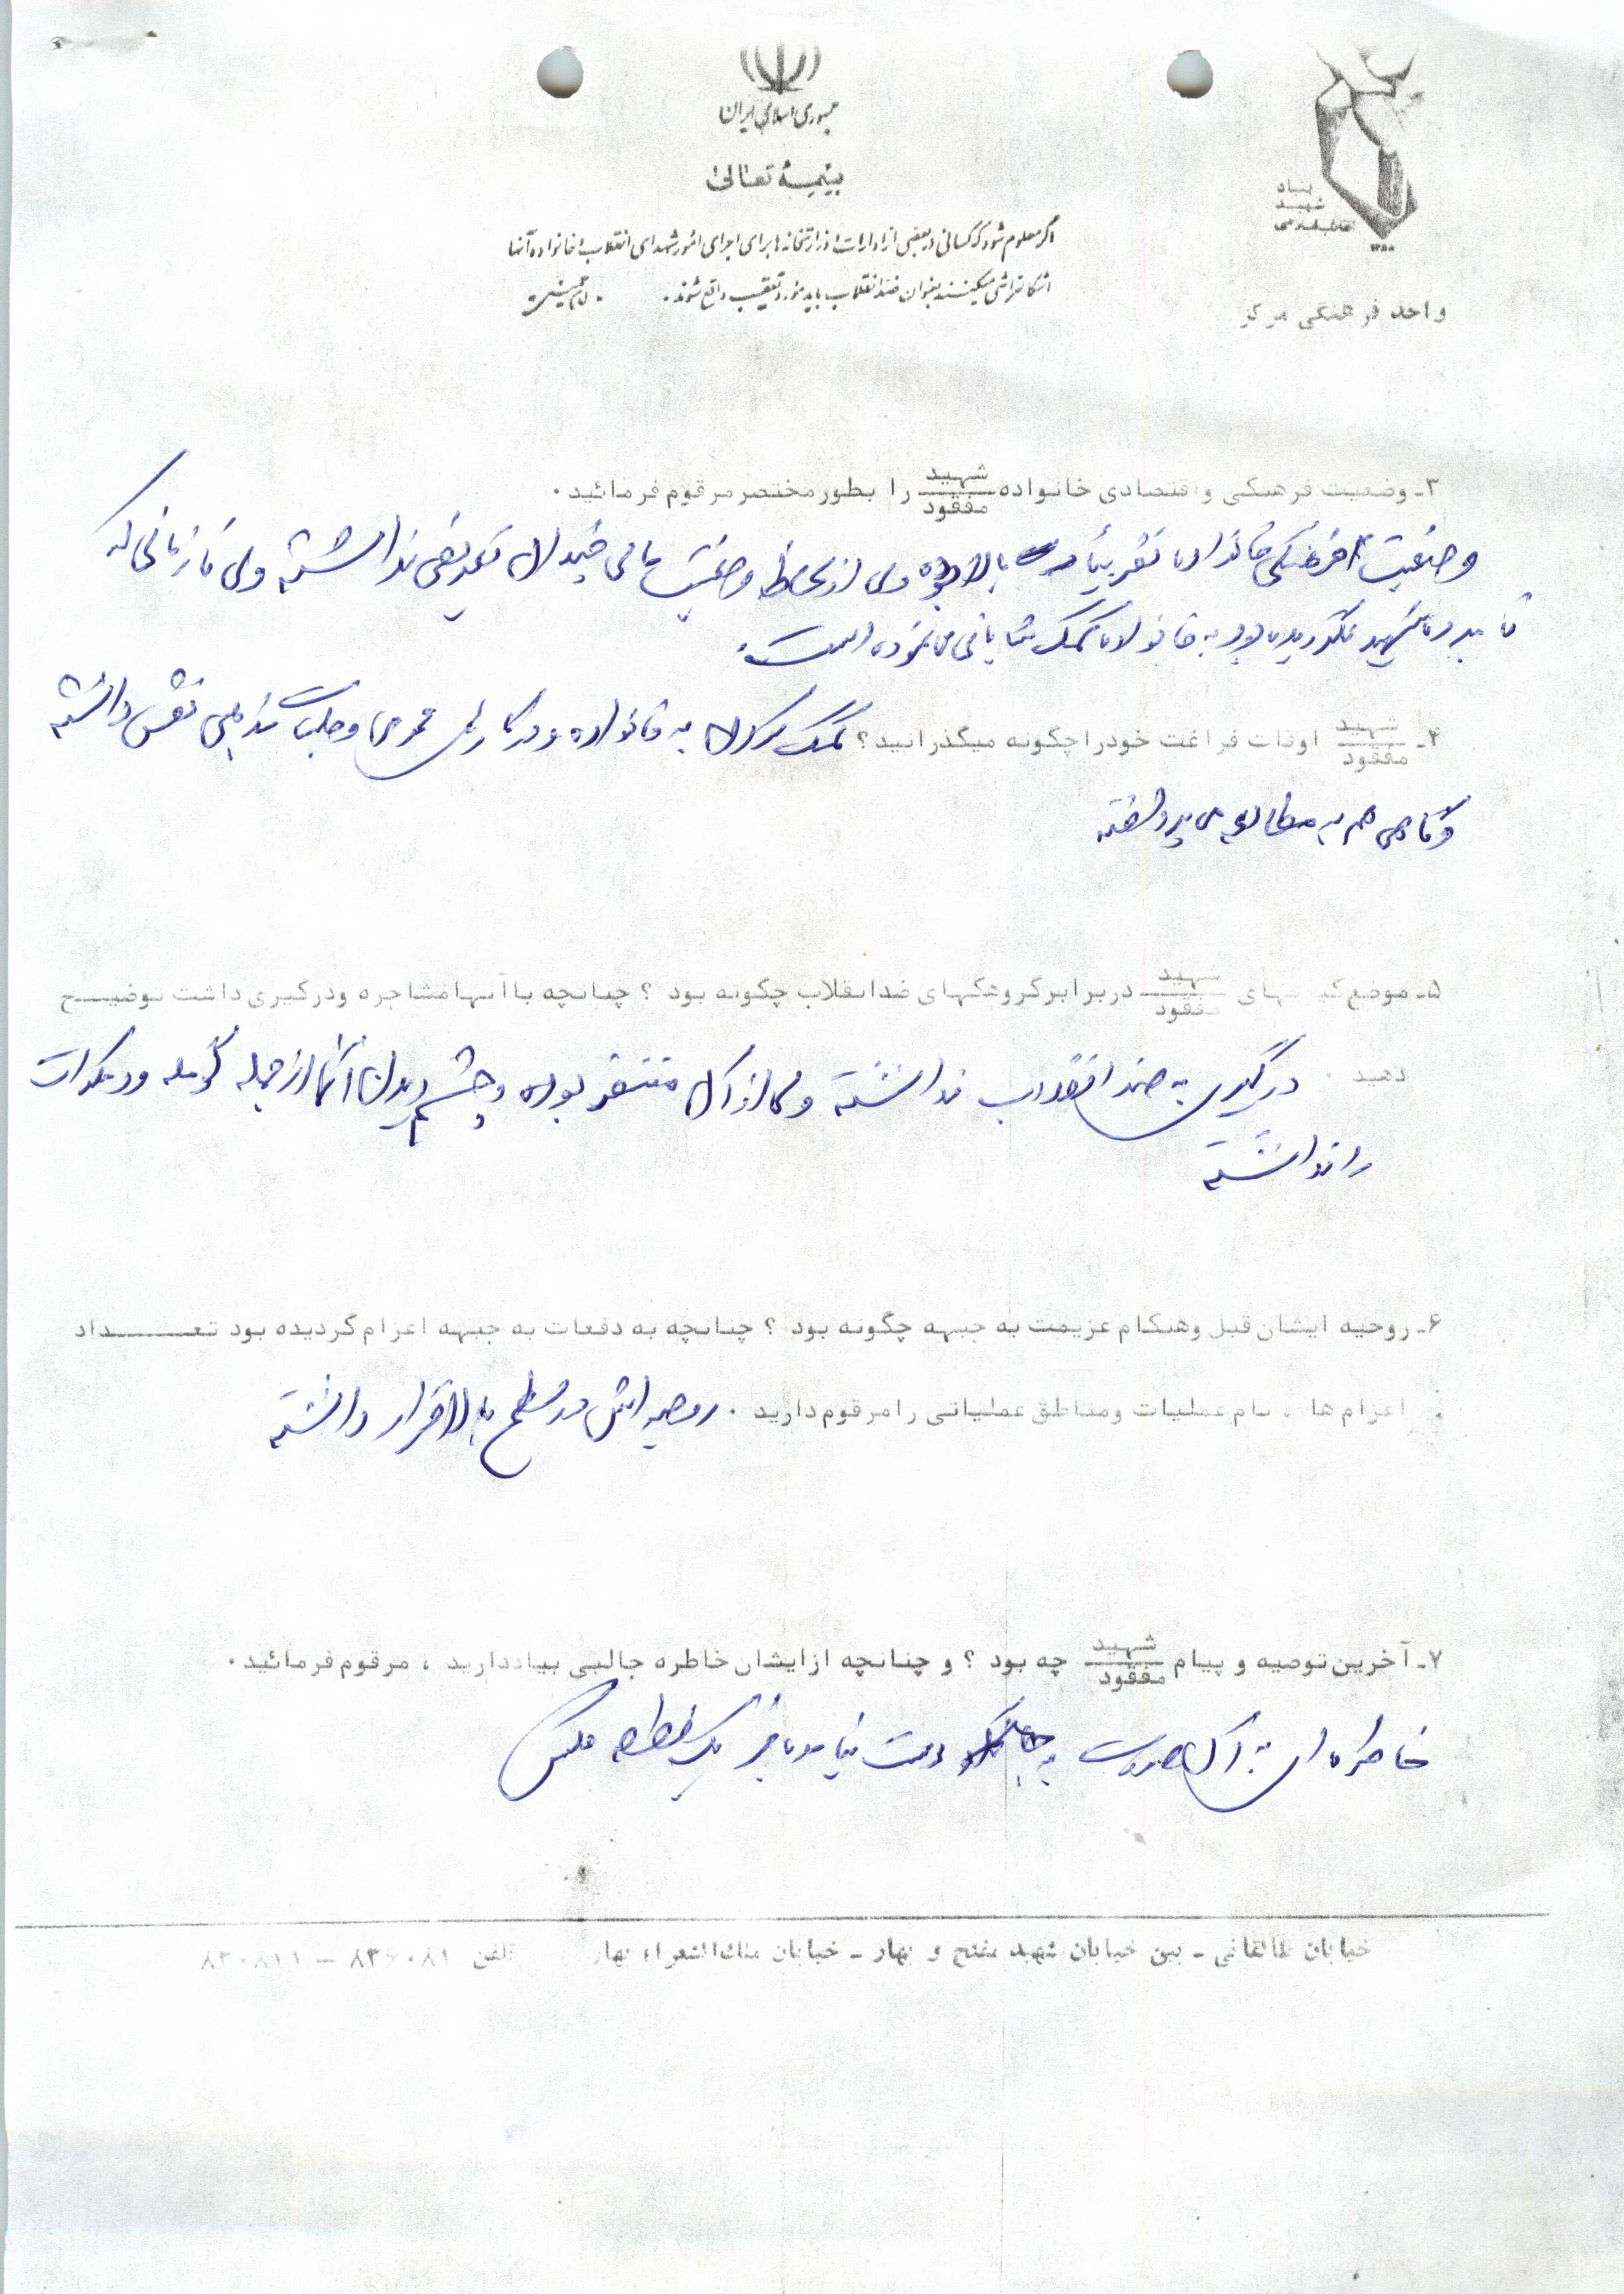 جمهوری اسلامی ایران
بسمه تعالی
بنیاد
شهید
انقلاب اسلامی
۱۳۵۸
اگر معلوم شود که کسانی در بعضی از ادارات و وزارتخانه‌ها برای اجرای امور شهدای انقلاب و خانواده آنها
اشکالتراشی میکنند بعنوان ضد انقلاب باید مورد تعقیب واقع شوند. امام خمینی
واحد فرهنگی مرکز
۳ـ وضعیت فرهنگی واقتصادی خانواده شهید/مفقود را بطور مختصر مرقوم فرمائید.
وضعیت فرهنگی خانواده تقریباً بالا بوده ولی از لحاظ وضعیت مالی چندان تعریفی نداشته ولی تا زمانی که
شهید نگردیده بود به خانواده کمک شایانی می‌نموده است.
۴ـ شهید/مفقود اوقات فراغت خودرا چگونه میگذرانید؟ کمک کردن به خانواده و در کارهای عمومی و جلسات مذهبی نقش داشته
و گاهی هم به مطالعه می پرداخته
۵ـ موضع گیریهای شهید/مفقود دربرابر گروهکهای ضدانقلاب چگونه بود ؟ چنانچه باآنها مشاجره ودرگیری داشت توضیح
دهید . درگیری به ضد انقلاب نداشته ولی از آن متنفر بوده و چشم دیدن آنها از جمله کومله و دمکرات
را نداشته
۶ـ روحیه ایشان قبل وهنگام عزیمت به جبهه چگونه بود ؟ چنانچه به دفعات به جبهه اعزام گردیده بود تعداد
اعزام ها ، نام عملیات ومناطق عملیاتی را مرقوم دارید . روحیه اش در سطح بالا قرار داشته
۷ـ آخرین توصیه و پیام شهید/مفقود چه بود ؟ و چنانچه ازایشان خاطره جالبی بیاددارید ، مرقوم فرمائید.
خاطره ای به آن صورت دست نیامده بجز یک قطعه عکس
خیابان طالقانی ـ بین خیابان شهید مفتح و بهار ـ خیابان ملک‌الشعراء بهار تلفن ۸۳۶۰۸۱ – ۸۳۰۸۱۱